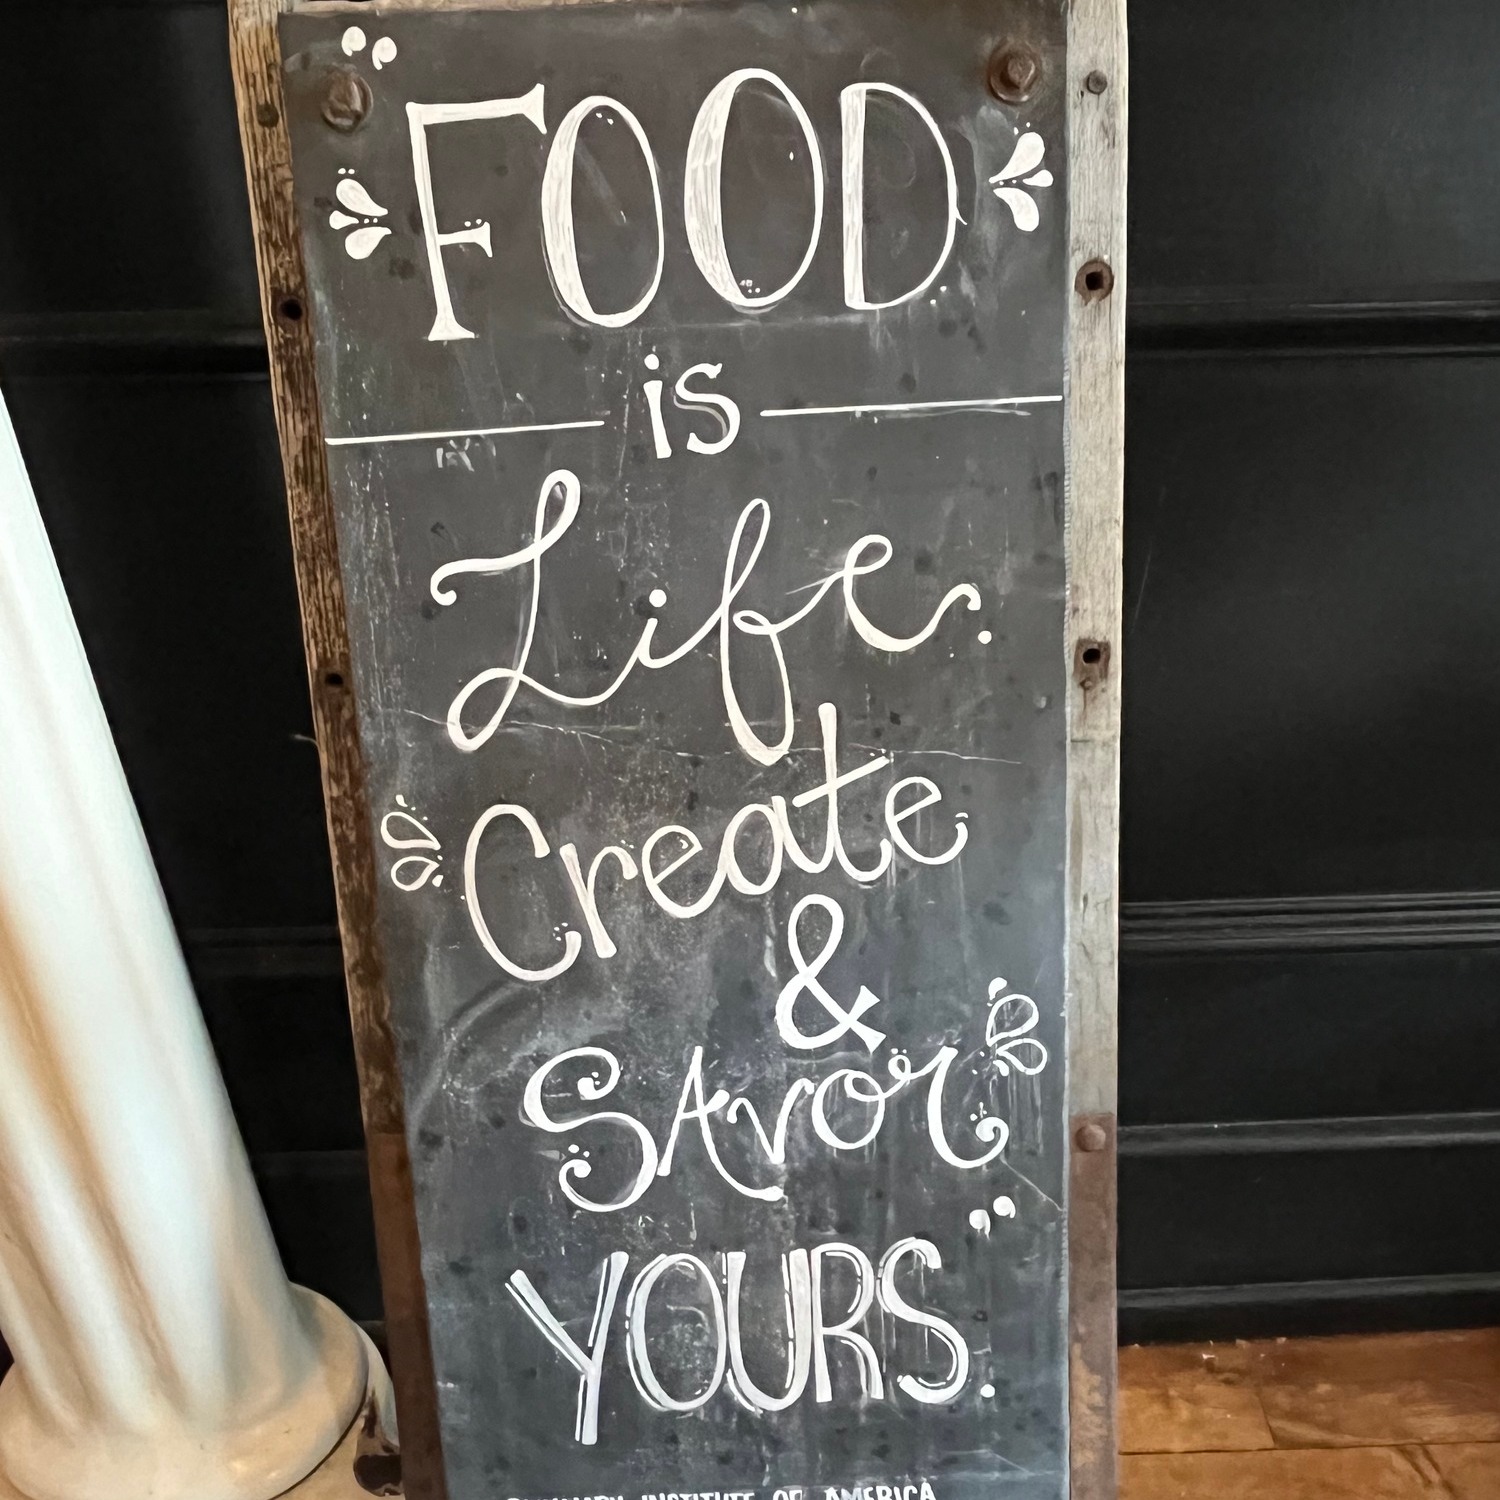 "FOOD
is
Life.
Create
&
SAvor
YOURS."
CULINARY INSTITUTE OF AMERICA